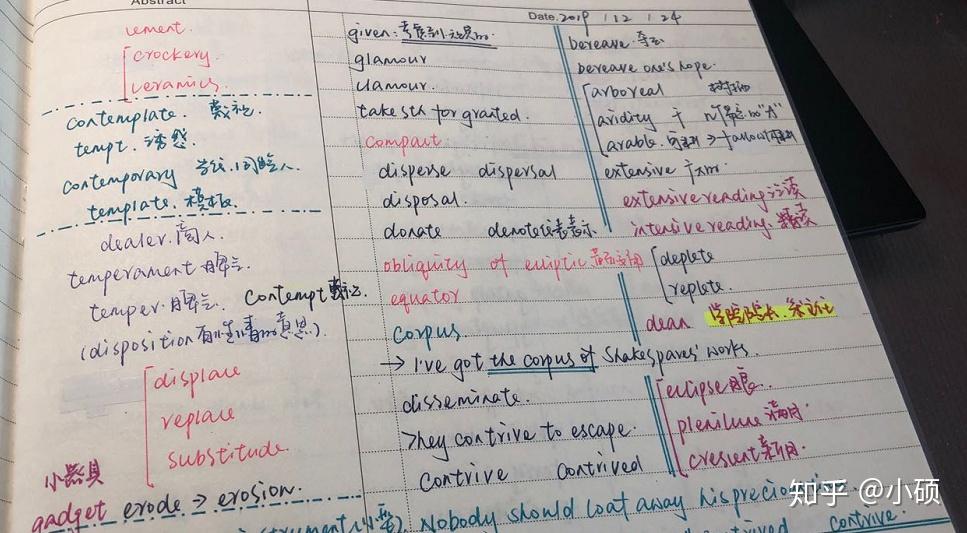 Abstract
cement.
crockery.
ceramics.
contemplate. 藐视.
tempt. 诱惑.
contemporary 当代.同龄人.
template. 模板.
dealer. 商人.
temperament 脾气
temper. 脾气.
(disposition 有性情的意思).
displace
replace
substitude.
小器具
gadget erode → erosion.
Date. 2019 / 12 / 24
given:
glamour
clamour.
take sth for granted.
compact
disperse dispersal
disposal.
donate denote
obliquity of ecliptic
equator
Contempt 藐视.
corpus.
→ I've got the corpus of Shakespares' works.
disseminate.
They contrive to escape.
contrive contrived
Nobody should loat away his precious
bereave.
bereave one's hope.
arboreal
aridity 干
arable.
extensive
extensive reading 泛读
intensive reading. 精读
deplete
replete.
dean 学院院长.
eclipse
plenilune 满月.
crescent 新月.
contrived contrive.
知乎 @小硕